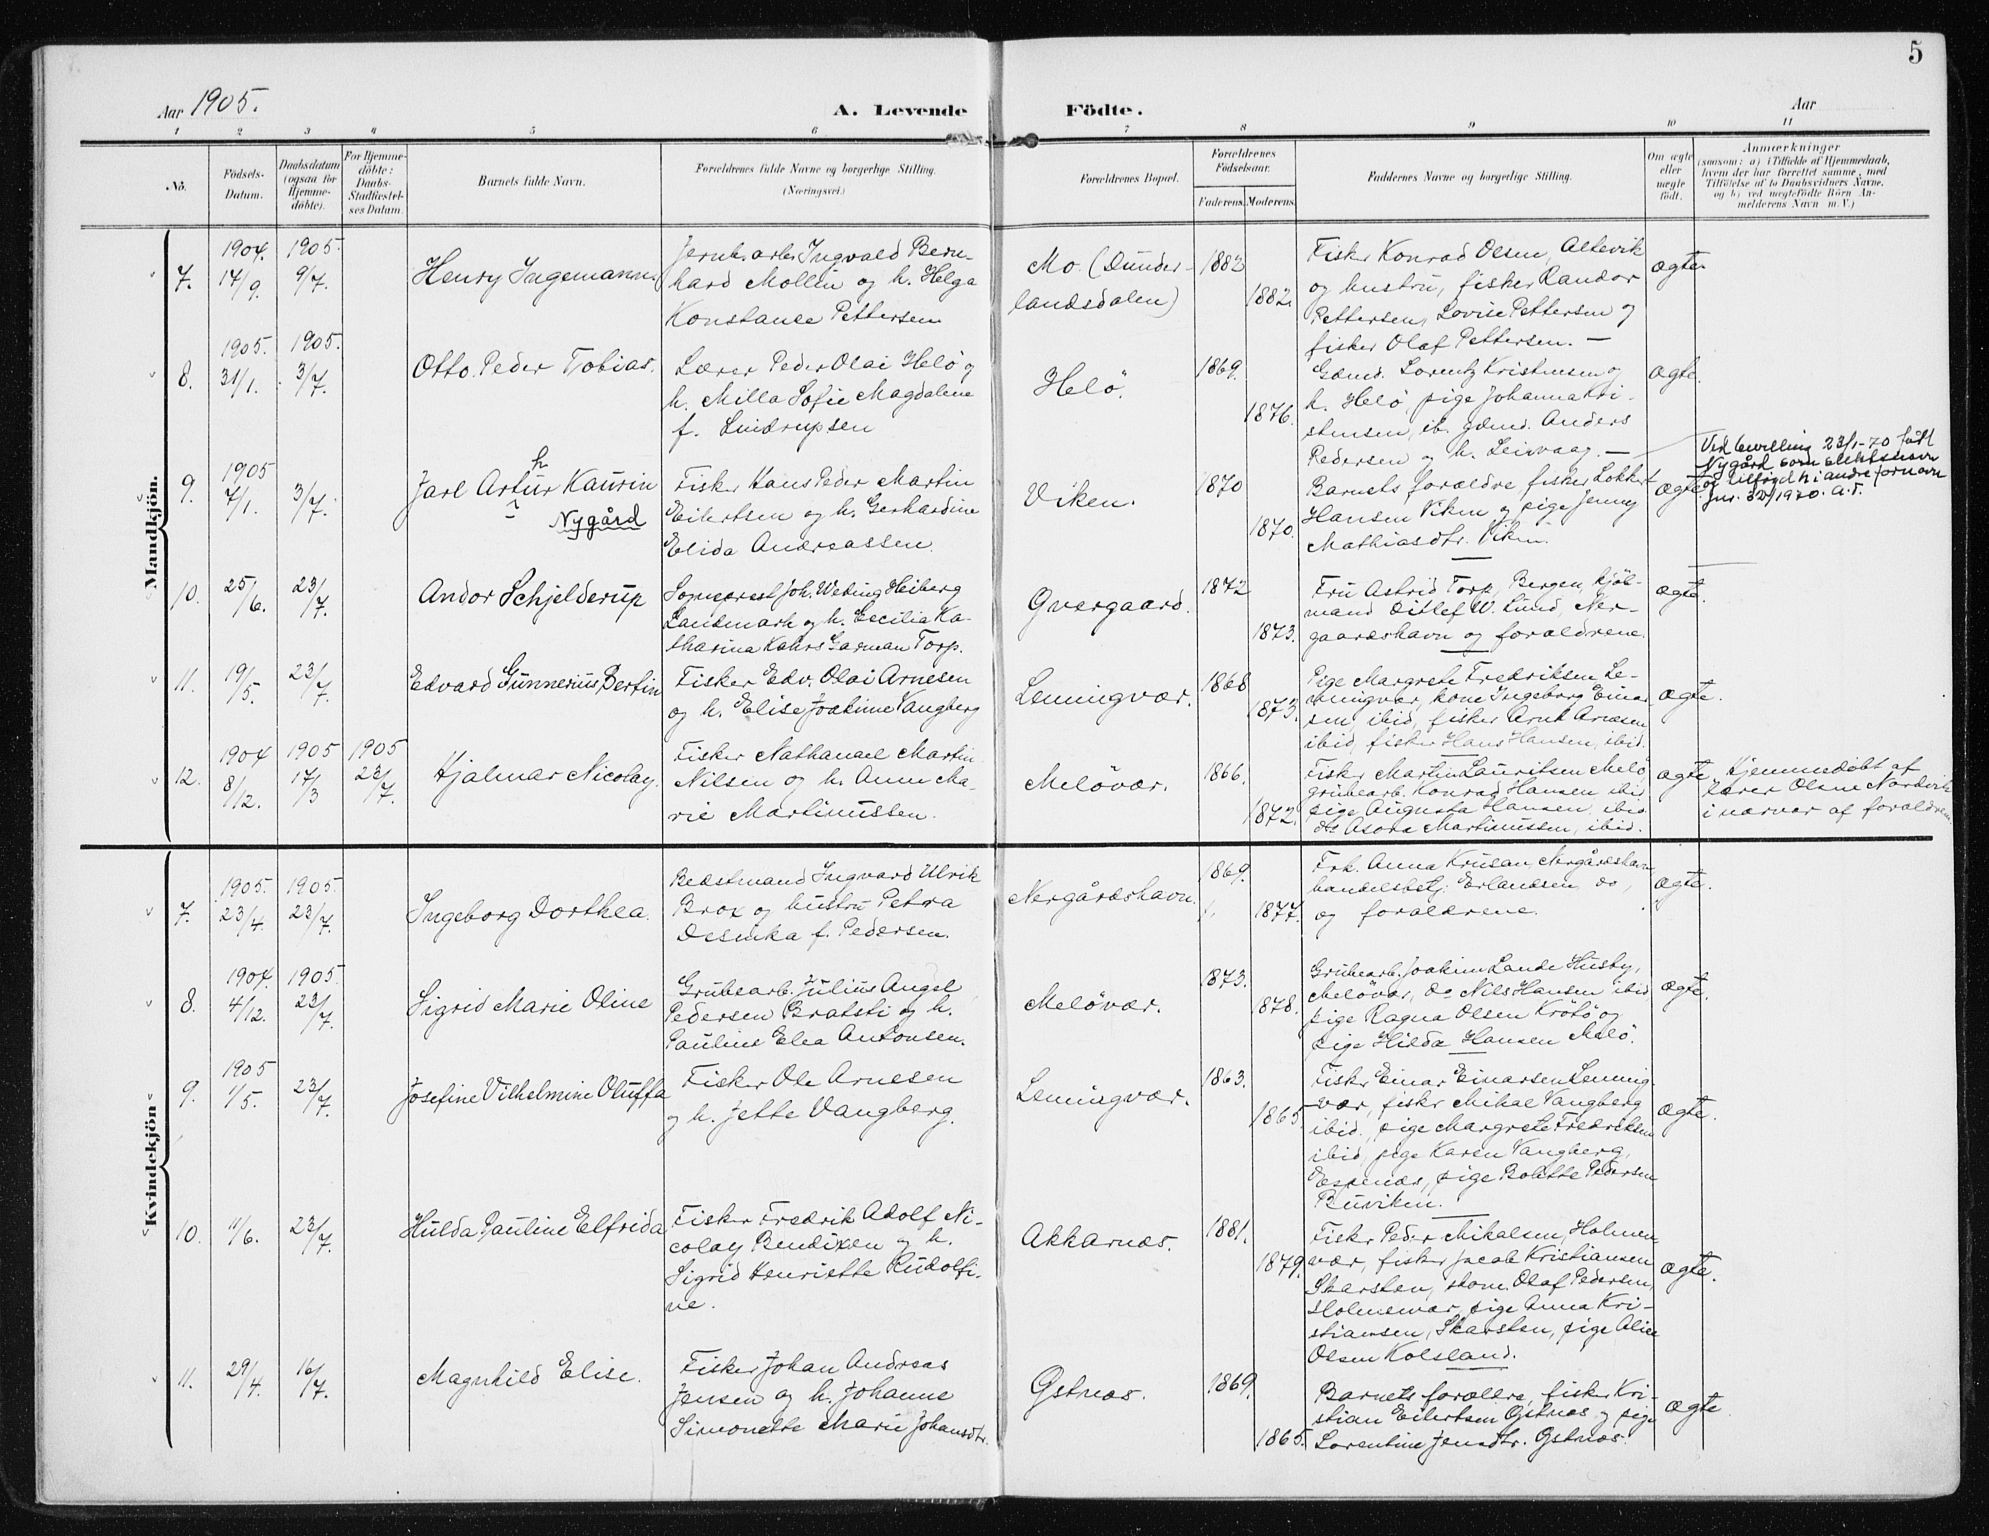 5
Aar 1905.
A. Levende Födte.
Aar
1 2 3 4 5 6 7 8 9 10 11
No.
Födsels-
Datum.
Daabsdatum
(ogsaa for
Hjemme-
döbte).
For Hjemme-
döbte:
Daabs-
Stadfæstel-
ses Datum.
Barnets fulde Navn.
Forældrenes fulde Navne og borgerlige Stilling.
(Næringsvei.)
Forældrenes Bopæl.
Forældrenes
Födselsaar.
Faderens. Moderens.
Faddernes Navne og borgerlige Stilling.
Om ægte
eller
uægte
födt.
Anmærkninger
(saasom: a) i Tilfælde af Hjemmedaab,
hvem der har forrettet samme, med
Tilföielse af to Daabsvidners Navne,
og b) ved uægtefödte Börn An-
melderens Navn m. V.)
Mandkjön.
7.
1904
17/9.
1905.
9/7.
Henry Ingemann
Jernb. arb. Ingvald Bern-
hard Mollin og h. Helga
Konstance Pettersen
Mo (Dunder-
landsdalen)
1882
1882.
Fisker Konrad Olsen, Altevik
og hustru, fisker Randor
Pettersen, Lovise Pettersen og
fisker Olaf Pettersen. —
ægte
8.
1905.
31/1.
1905.
3/7.
Otto Peder Tobias.
Lærer Peder Olai Helö og
h. Milla Sofie Magdalene
f. Lindrupsen
Helö.
1869.
1876.
Gdmd. Lorentz Kristensen og
h. Helö, pige Johanna Kri-
stensen, ib. gdmd. Anders
Pedersen og h. Leirvaag. —
ægte.
9.
1905
7/1.
3/7.
Jarl Artur Kaurin
h
Nygård
Fisker Hans Peder Martin
Eilertsen og h. Gerhardine
Elida Andreassen.
Viken.
1870
1870.
Barnets forældre, fisker Lokkert
Hansen Viken og pige Jenny
Mathiasdtr. Viken.
ægte
Ved bevilling 23/1-70 fått
Nygård som slektsnavn
og tilføyd h i andre fornavn
Jnr. 32/1970. A.F.
10.
25/6.
23/7.
Andor Schjelderup
Sogneprest Joh. Weding Heiberg
Landmark og h. Cecilia Ka-
tharina Kahrs Garman Torp.
Qvergaard.
1872
1873.
Fru Astrid Torp, Bergen, kjöb-
mand Ditlef W. Lund, Ner-
gaardshavn og forældrene.
ægte.
11.
19/5.
23/7.
Edvard Gunnerius Bertin
Fisker Edv. Olai Arnesen
og h. Elise Joakime Vangberg
Lemingvær.
1868
1873.
Pige Margrete Fredriksen Le-
mingvær, kone Ingeborg Einar-
sen ibid, fisker Arnt Arnesen
ibid, fisker Hans Hansen, ibid.
ægte.
12.
1904
8/12.
1905
17/3
1905
23/7.
Hjalmar Nicolay.
Fisker Nathanael Martin
Nilsen og h. Anne Ma-
rie Martinussen.
Melövær.
1866.
1872.
Fisker Martin Lauritsen Melö,
grubearb. Konrad Hansen ibid
pige Augusta Hansen ibid
do Asora Martinussen, ibid.
ægte
Hjemmedöbt af
lærer Olsne Nordvik
i nærvær af forældrene.
Kvindekjön
7.
1905.
23/4.
1905.
23/7.
Ingeborg Dorthea.
Bedstmand Ingvard Ulrik
Brox og hustru Petra
Desinka f. Pedersen.
Nergårdshavn.
1869.
1877.
Frk. Anna Krusan, Nergårdshavn
handelsbetj. Erlandsen, do,
og forældrene.
ægte.
8.
1904.
4/12.
1905.
23/7.
Sigrid Marie Oline
Grubearb. Julius Angel
Pedersen Bratsti og h.
Pauline Elea Antonsen.
Melövær.
1873.
1878.
Grubearb. Joakim Lande Husby,
Melövær, do Nils Hansen ibid
pige Ragna Olsen Krötö og
pige Hilda Hansen Melö.
ægte.
9.
1905
1/5.
23/7.
Josefine Vilhelmine Oluffa
Fisker Ole Arnesen
og h. Jette Vangberg.
Lemingvær.
1863.
1865
Fisker Einar Einarsen Leming-
vær, fisker Mikal Vangberg
ibid., pige Margrete Fredriksen
ibid, pige Karen Vangberg,
Espenæs, pige Bolette Pedersen
Buviken.
ægte.
10.
11/6.
23/7.
Hulda Pauline Elfrida
Fisker Fredrik Adolf Ni-
colay Bendixen og h.
Sigrid Henriette Rudolfi-
ne.
Akkarnæs.
1881.
1879.
Fisker Peder Mikalsen, Holmen-
vær, fisker Jacob Kristiansen
Skarsten, skom. Olaf Pedersen,
Holmenvær, pige Anna Kri-
stiansen, Skarsten, pige Alice
Olsen Kolsland.
ægte.
11.
29/4.
16/7.
Magnhild Elise.
Fisker Johan Andreas
Jensen og h. Johanne
Simonette Marie Johansdtr.
Gstnæs.
1869.
1865.
Barnets forældre, fisker Kri-
stian Eilertsen Gstnæs og pige
Lorentine Jensdtr. Gstnæs.
ægte